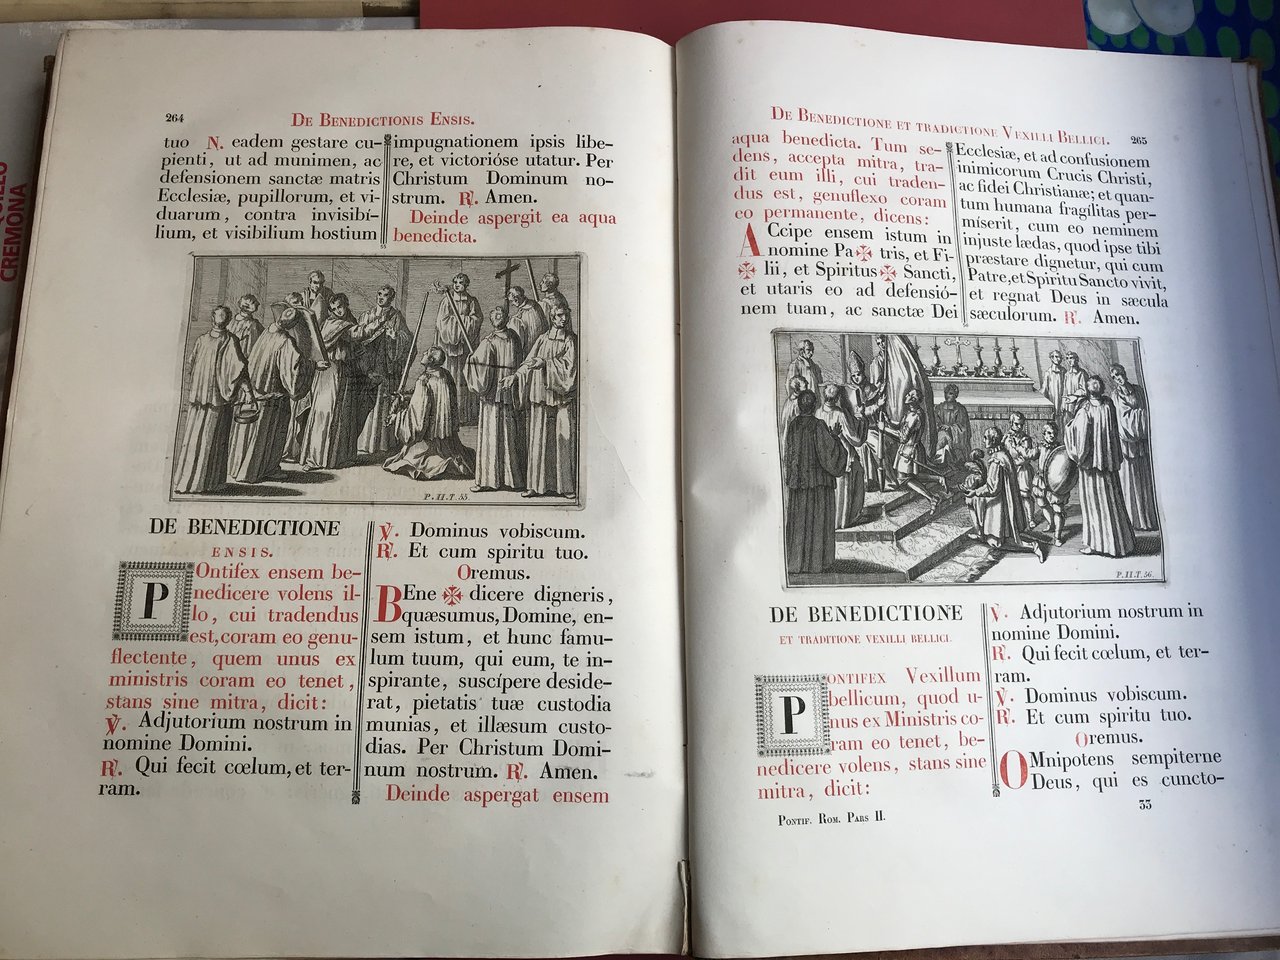 CREMONA
264
De Benedictionis Ensis.
tuo N. eadem gestare cu-
pienti, ut ad munimen, ac
defensionem sanctæ matris
Ecclesiæ, pupillorum, et vi-
duarum, contra invisibí-
lium, et visibilium hostium
impugnationem ipsis libe-
re, et victorióse utatur. Per
Christum Dominum no-
strum. ℟. Amen.
Deinde aspergit ea aqua
benedicta.
P. II. T. 55.
DE BENEDICTIONE
ENSIS.
POntifex ensem be-
nedicere volens il-
lo, cui tradendus
est, coram eo genu-
flectente, quem unus ex
ministris coram eo tenet,
stans sine mitra, dicit:
℣. Adjutorium nostrum in
nomine Domini.
℟. Qui fecit cœlum, et ter-
ram.
℣. Dominus vobiscum.
℟. Et cum spiritu tuo.
Oremus.
BEne ✠ dicere digneris,
quæsumus, Domine, en-
sem istum, et hunc famu-
lum tuum, qui eum, te in-
spirante, suscípere deside-
rat, pietatis tuæ custodia
munias, et illæsum custo-
dias. Per Christum Domi-
num nostrum. ℟. Amen.
Deinde aspergat ensem
De Benedictione et tradictione Vexilli Bellici.
265
aqua benedicta. Tum se-
dens, accepta mitra, tra-
dit eum illi, cui traden-
dus est, genuflexo coram
eo permanente, dicens:
ACcipe ensem istum in
nomine Pa ✠ tris, et Fi-
✠ lii, et Spiritus ✠ Sancti,
et utaris eo ad defensió-
nem tuam, ac sanctæ Dei
Ecclesiæ, et ad confusionem
inimicorum Crucis Christi,
ac fidei Christianæ; et quan-
tum humana fragílitas per-
míserit, cum eo neminem
injuste lædas, quod ipse tibi
præstare dignetur, qui cum
Patre, et Spiritu Sancto vivit,
et regnat Deus in sæcula
sæculorum. ℟. Amen.
P. II. T. 56.
DE BENEDICTIONE
ET TRADITIONE VEXILLI BELLICI.
PONTIFEX Vexillum
bellicum, quod u-
nus ex Ministris co-
ram eo tenet, be-
nedicere volens, stans sine
mitra, dicit:
℣. Adjutorium nostrum in
nomine Domini.
℟. Qui fecit cœlum, et ter-
ram.
℣. Dominus vobiscum.
℟. Et cum spiritu tuo.
Oremus.
OMnipotens sempiterne
Deus, qui es cuncto-
Pontif. Rom. Pars II.
33